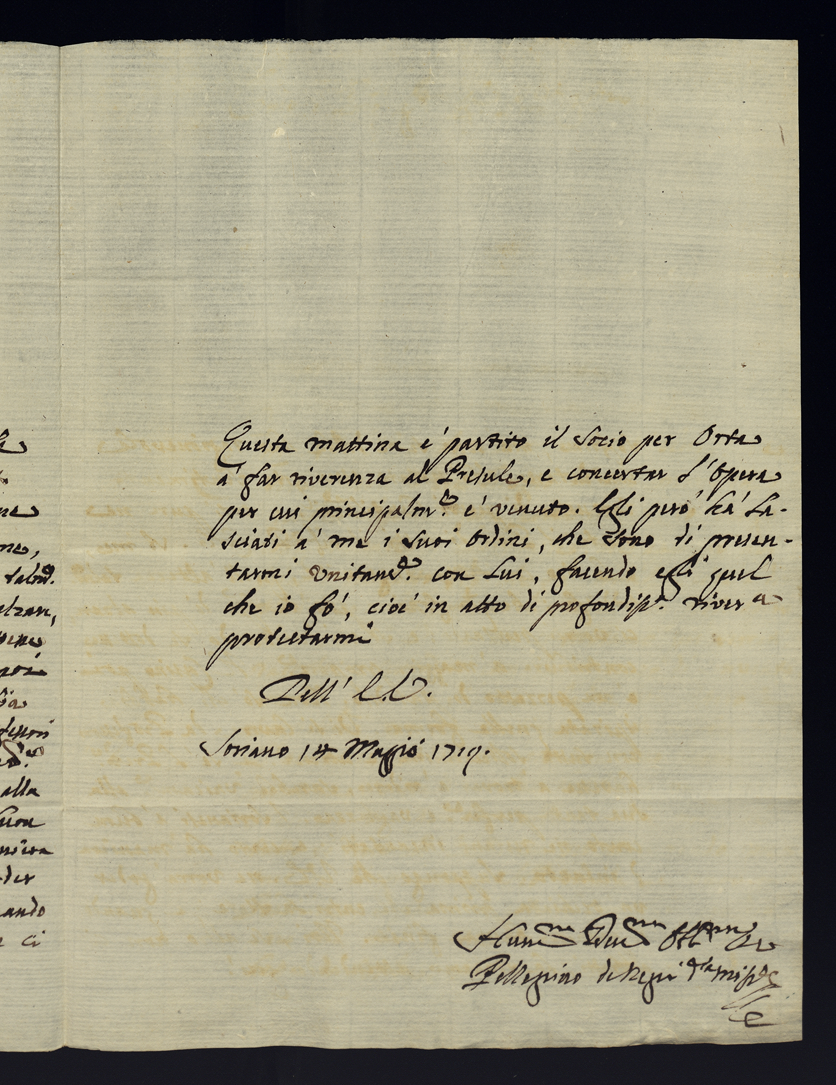 Questa mattina e' partito il Socio per Orta
a' far riverenza al Presule, e concertar l'Opera
per cui principalm.e e' venuto. Egli però hà la-
sciati a' me i suoi Ordini, che sono di presen-
tarmi unitam.e con Lui, facendo egli quel
che io fò, cioè in atto di profondiss.a river.a
protestarmi
Dell' E.V.
Soriano 14 Maggio 1719.
Hum.mo Dev.mo Obl.mo
Pellegrino de Negri
alla
ando
ci